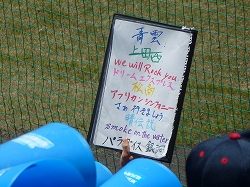 青雲
上田西
We will Rock you
ドリームエクスプレス
秘密
アフリカンシンフォニー
さぁ行きましょう
smoke on the water
パラダイス銀河